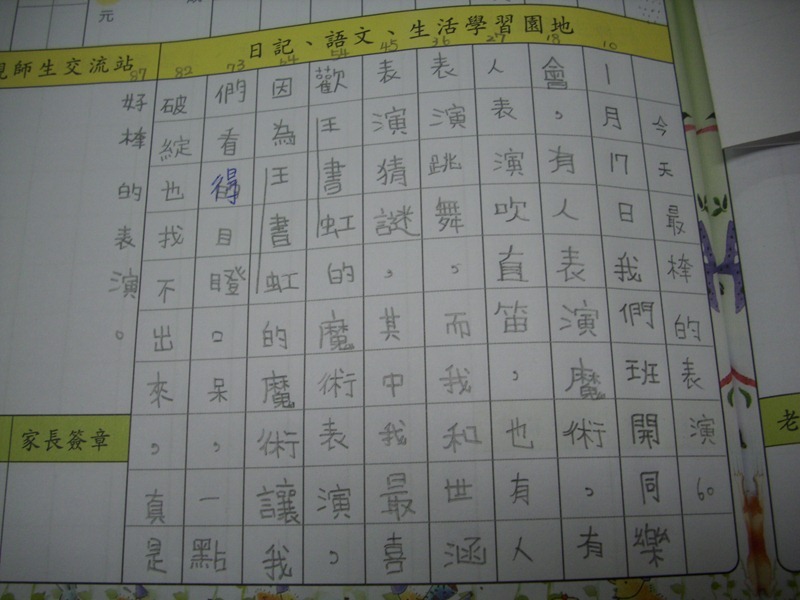 元
日記、語文、生活學習園地
親師生交流站
10
18
27
36
45
54
64
73
82
87
今天最棒的表演60
1月17日我們班開同樂
會，有人表演魔術，有
人表演吹直笛，也有人
表演跳舞，而我和世涵
表演猜謎，其中我最喜
歡王書虹的魔術表演，
因為王書虹的魔術讓我
們看得目瞪口呆，一點
破綻也找不出來，真是
好棒的表演。
家長簽章
老